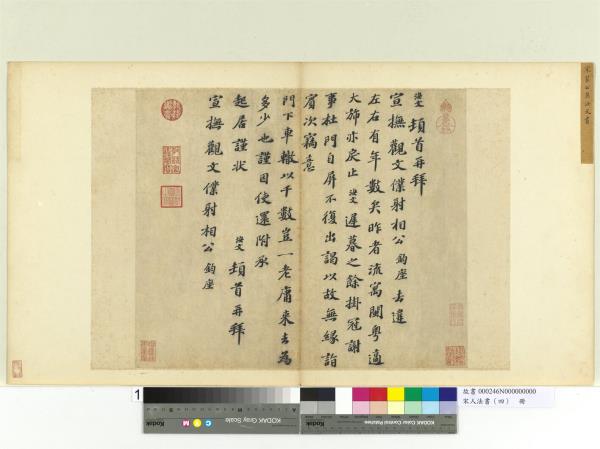 頓首再拜
宣撫觀文僕射相公 鈞座 去違
左右有年數矣昨者流寓閩粵適
大旆亦戾止 遲暮之餘掛冠謝
事杜門自屏不復出謁以故無緣詣
賓次竊意
門下車轍以千數豈一老庸來去為
多少也謹因使還附承
起居謹狀
頓首再拜
宣撫觀文僕射相公 鈞座
1
Kodak Gray Scale
KODAK Color Control Patches
故書 000246N000000000
宋人法書（四） 冊